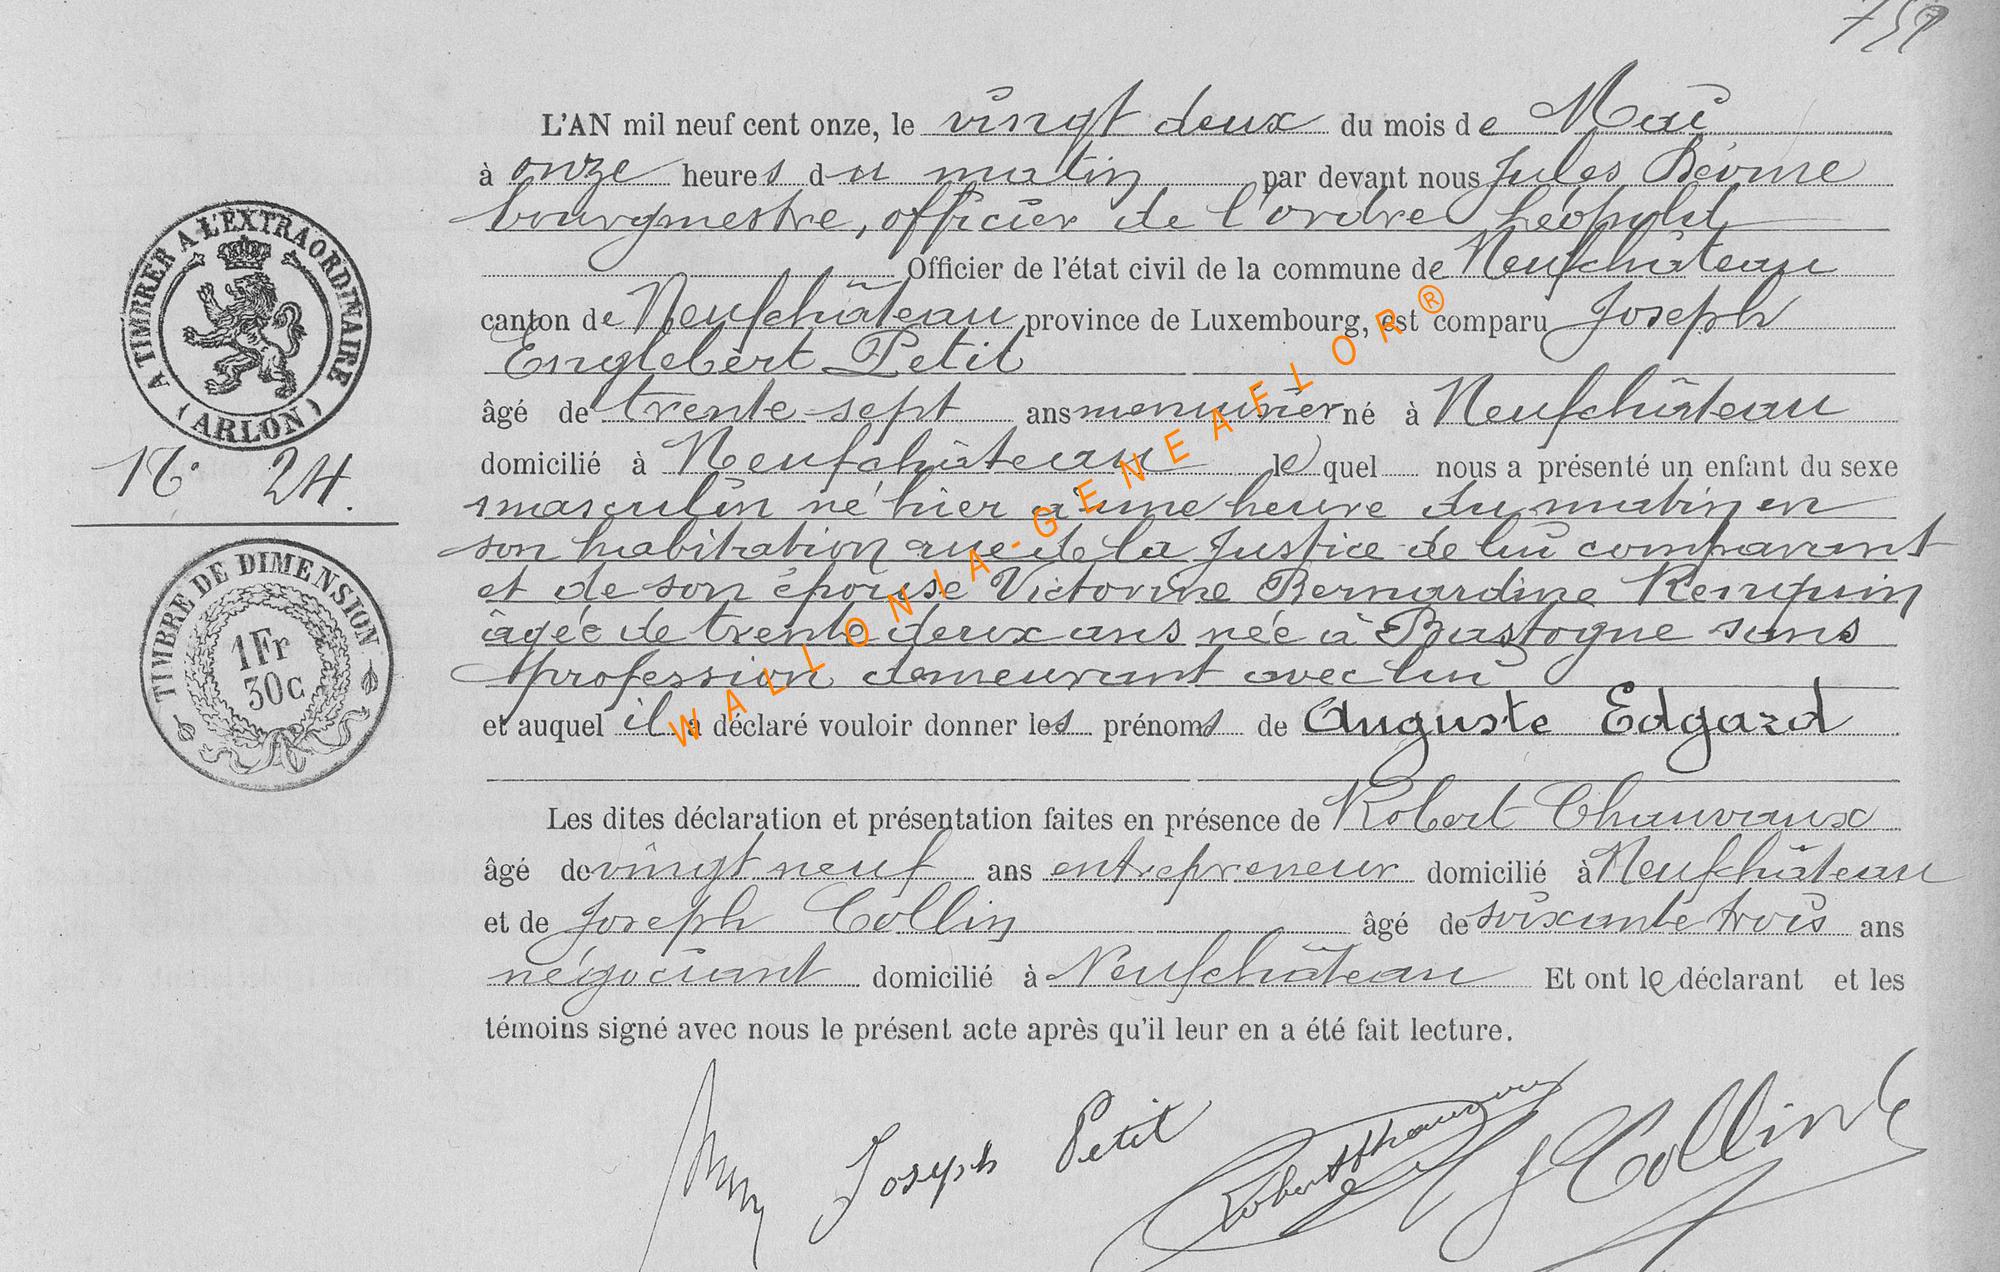 L'AN mil neuf cent onze, le vingt deux du mois de Mai
à onze heures du matin par devant nous Jules
bourgmestre, officier de l'ordre Léopold
Officier de l'état civil de la commune de Neufchâteau
canton de Neufchâteau province de Luxembourg, est comparu Joseph
Englebert Petit
âgé de trente sept ans menuisier né à Neufchâteau
domicilié à Neufchâteau lequel nous a présenté un enfant du sexe
masculin né hier à une heure du matin en
son habitation rue de la Justice de lui comparant
et de son épouse Victorine Bernardine Renquin
âgée de trente deux ans née à Bastogne sans
profession demeurant avec lui
et auquel il a déclaré vouloir donner les prénoms de Auguste Edgard
Les dites déclaration et présentation faites en présence de Robert Chauvaux
âgé de vingt neuf ans entrepreneur domicilié à Neufchâteau
et de Joseph Collin âgé de soixante trois ans
négociant domicilié à Neufchâteau Et ont le déclarant et les
témoins signé avec nous le présent acte après qu'il leur en a été fait lecture.
Joseph Petit Robert Chauvaux J Collin
A TIMBRER A L'EXTRAORDINAIRE
(ARLON)
N° 24.
TIMBRE DE DIMENSION
1 Fr
30 c
WALLONIA-GENEAFLOR®